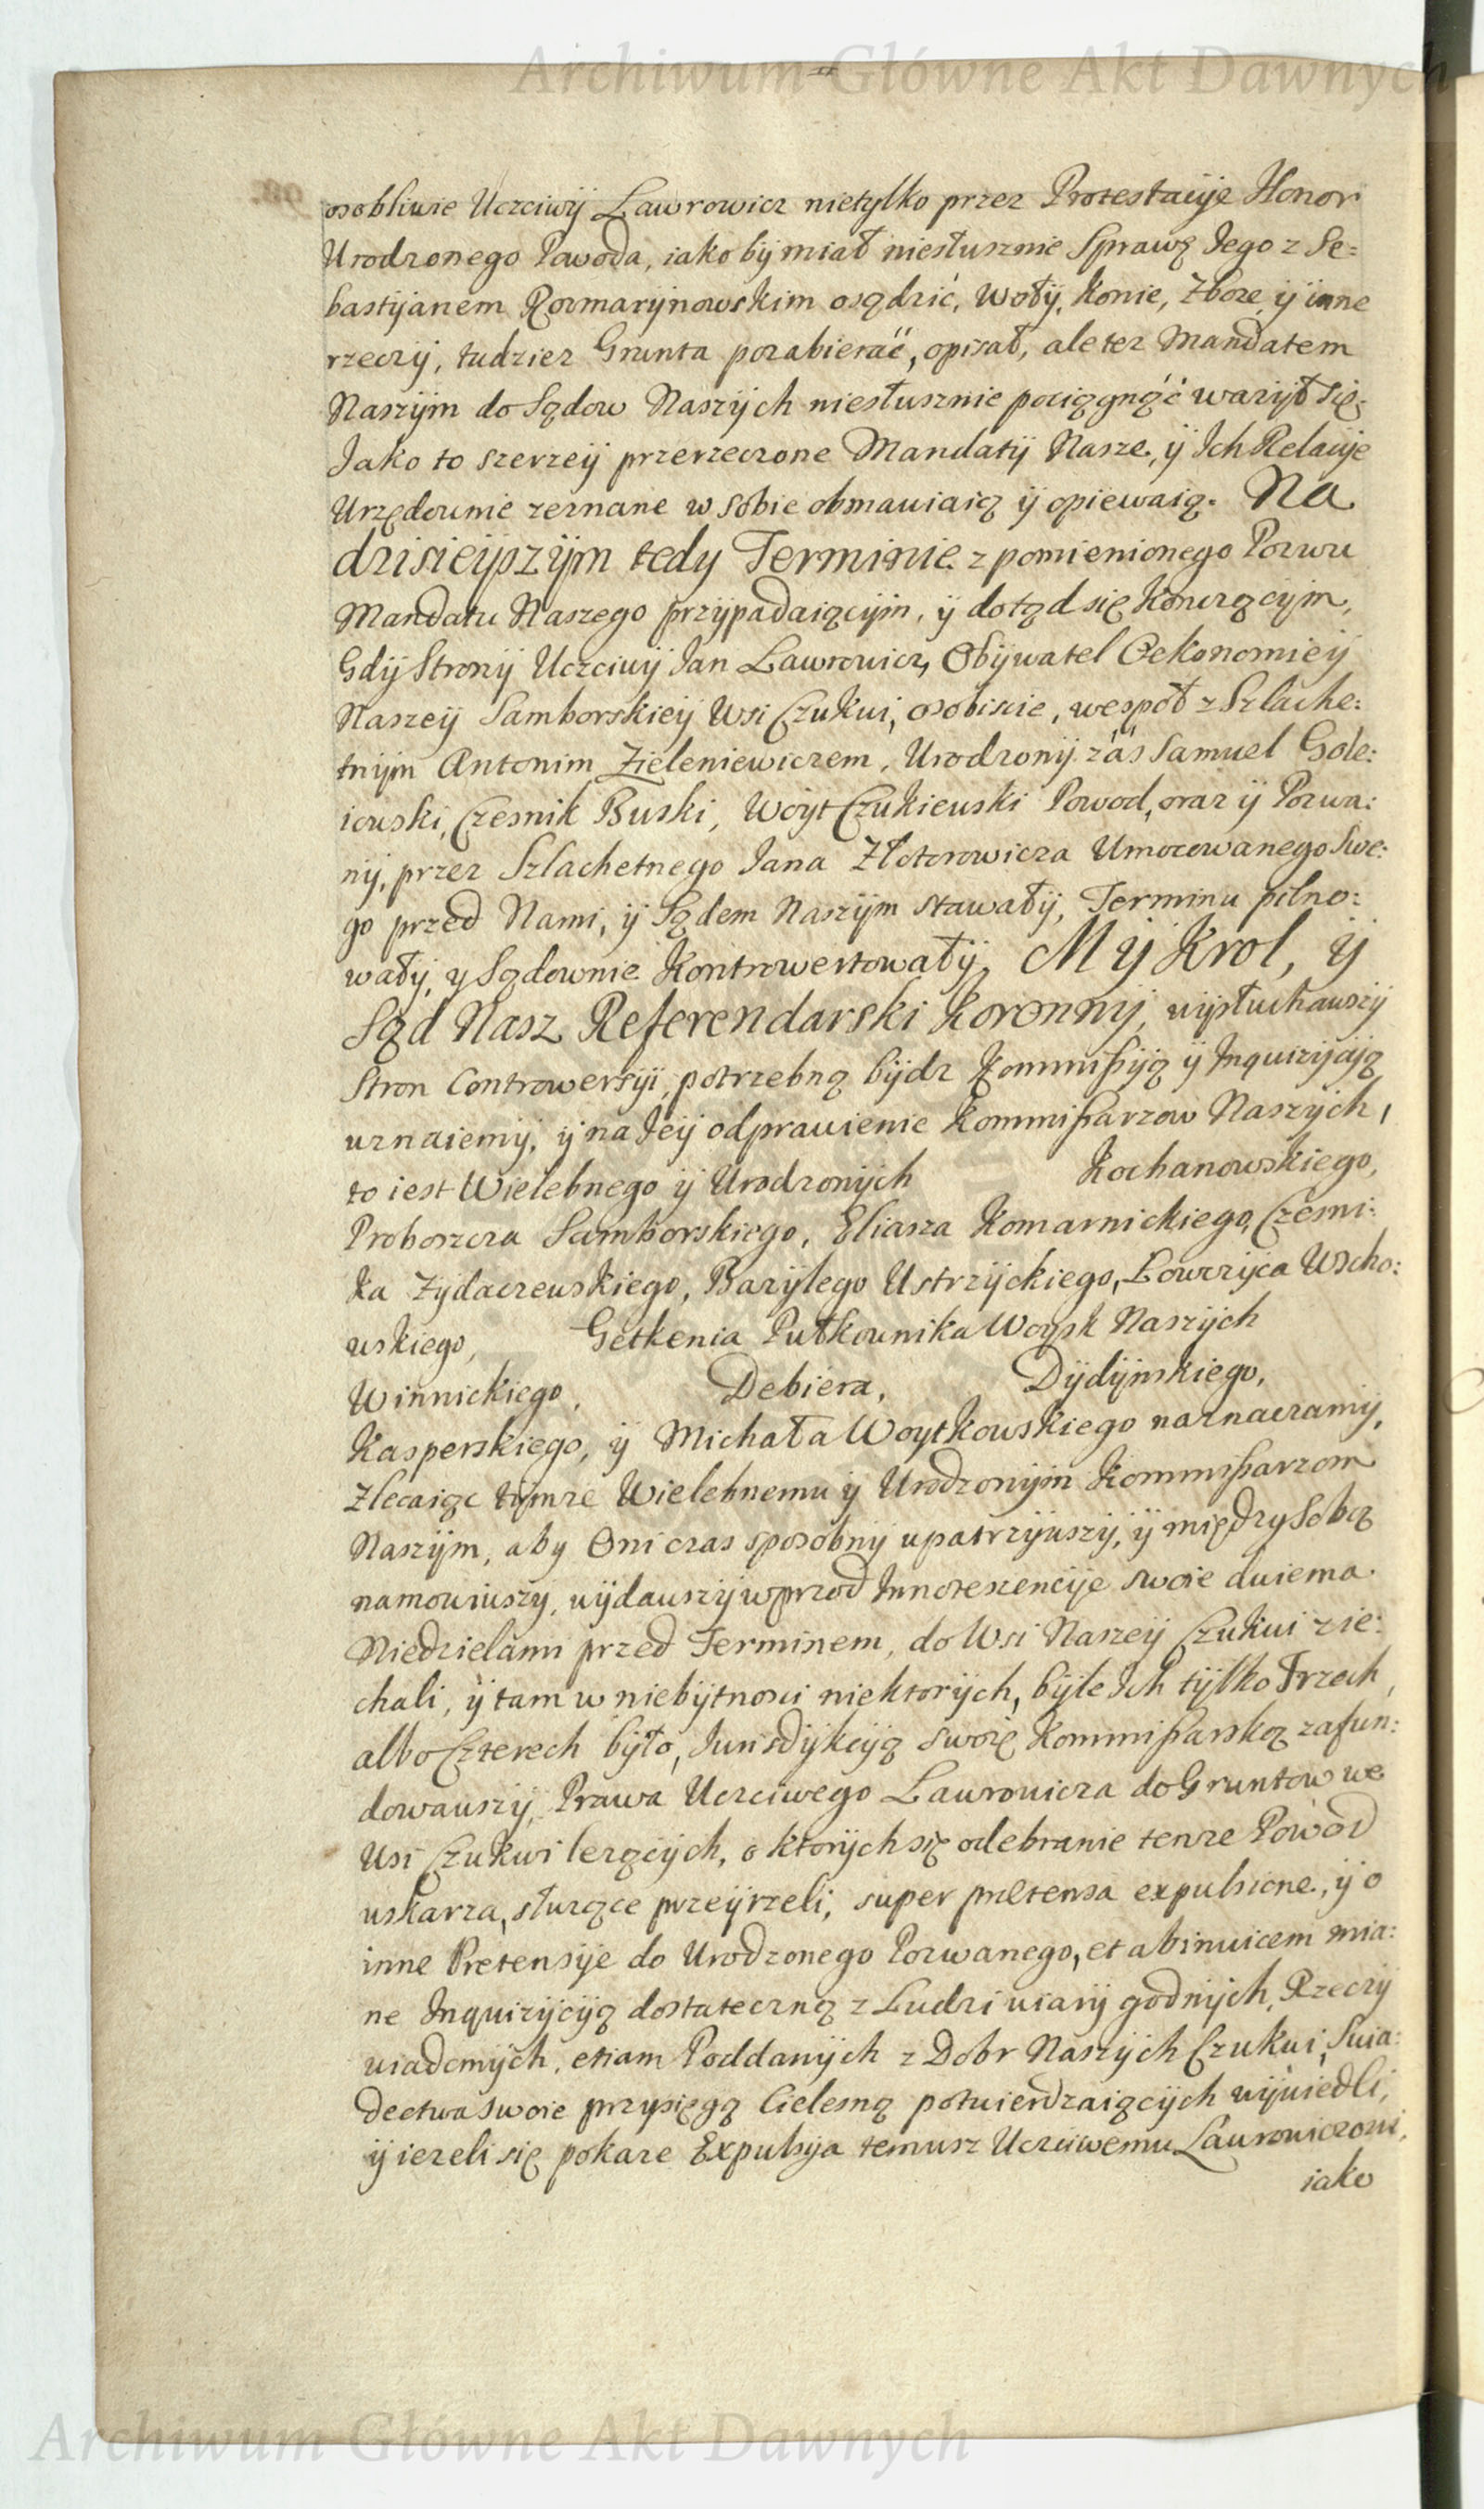 Archiwum Główne Akt Dawnych
osobliwie Uczciwÿ Lawrowicz nietylko przez Protestacÿje Honor
Urodzonego Powoda, iako bÿ miał niesłusznie Sprawę Jego z Se:
bastÿjanem Rozmarÿnowskim osądzić, Wołÿ, Konie, Zboże, ÿ inne
rzeczÿ, tudziez Grunta pozabierać, opisał, ale tez Mandatem
Naszÿm do Sądow Naszÿch niesłusznie pociągnąć ważÿł się.
Jako to szerzeÿ przerzeczone Mandatÿ Nasze, ÿ Ich Relacÿje
Urzędownie zeznane w Sobie obmawiaią ÿ opiewaią. Na
dzisieÿszÿm tedy Terminie z pomienionego Pozwu
Mandatu Naszego przÿpadaiącÿm, ÿ dotąd się Konczącÿm,
Gdÿ Stronÿ Uczciwÿ Jan Lawrowicz, Obÿwatel Oekonomieÿ
Naszeÿ Samborskieÿ Wsi Czukwi, osobiscie, wespół z Szlache:
tnÿm Antonim Zieleniewiczem, Urodzonÿ zaś Samuel Gole:
iewski, Czesnik Buski, Woÿt Czukiewski Powod, oraz ÿ Pozwa:
nÿ, przez Szlachetnego Jana Złotorowicza Umocowanego Swe:
go przed Nami, ÿ Sądem Naszÿm stawałÿ, Terminu pilno:
wałÿ, y Sądownie Kontrowertowałÿ, Mÿ Krol, ÿ
Sąd Nasz Referendarski Koronnÿ, wÿsłuchawszÿ
Stron Controwersÿi, potrzebną bÿdz Kommißÿą ÿ Inquizÿcÿą
uznaiemÿ, ÿ na Jeÿ odprawienie Kommißarzow Naszÿch,
to iest Wielebnego ÿ Urodzonÿch Kochanowskiego,
Proboszcza Samborskiego, Eliasza Komarnickiego, Czesni:
ka Zydaczewskiego, Bazÿlego Ustrzÿckiego, Lowczÿca Wscho:
wskiego, Getkenia Pułkownika Woysk Naszÿch
Winnickiego, Debiera, Dÿdÿnskiego,
Kasperskiego, ÿ Michała Woytkowskiego naznaczamÿ,
Zlecaiąc tÿmze Wielebnemu ÿ Urodzonÿm Kommißarzom
Naszÿm, aby Oni czas sposobnÿ upatrzÿwszÿ, ÿ między Sobą
namowiwszy, wÿdawszÿ wprzod Innotescencÿje swoie dwiema
Niedzielami przed Terminem, do Wsi Naszeÿ Czukwi zie:
chali, ÿ tam w niebÿtnosci niektorÿch, bÿle Ich tÿlko Trzech,
albo Czterech bÿło, Jurisdÿkcÿą swoię Kommißarską zafun:
dowawszÿ, Prawa Uczciwego Lawrowicza do Gruntow we
Wsi Czukwi lezącÿch, o ktorÿch się odebranie tenze Powod
uskarza, słuzące przeÿrzeli, super prætensa expulsione, ÿ o
inne Pretensÿje do Urodzonego Pozwanego, et abinvicem mia:
ne Inquizÿcÿą dostateczną z Ludzi wiarÿ godnÿch, Rzeczÿ
wiadomÿch, etiam Poddanÿch z Dobr Naszÿch Czukwi, Swia:
dectwa swoie przysięgą Cielesną potwierdzaiącÿch wÿwiedli,
ÿ iezeli się pokaze Expulsÿa temusz Uczciwemu Lawrowiczowi,
iako
Archiwum Główne Akt Dawnych